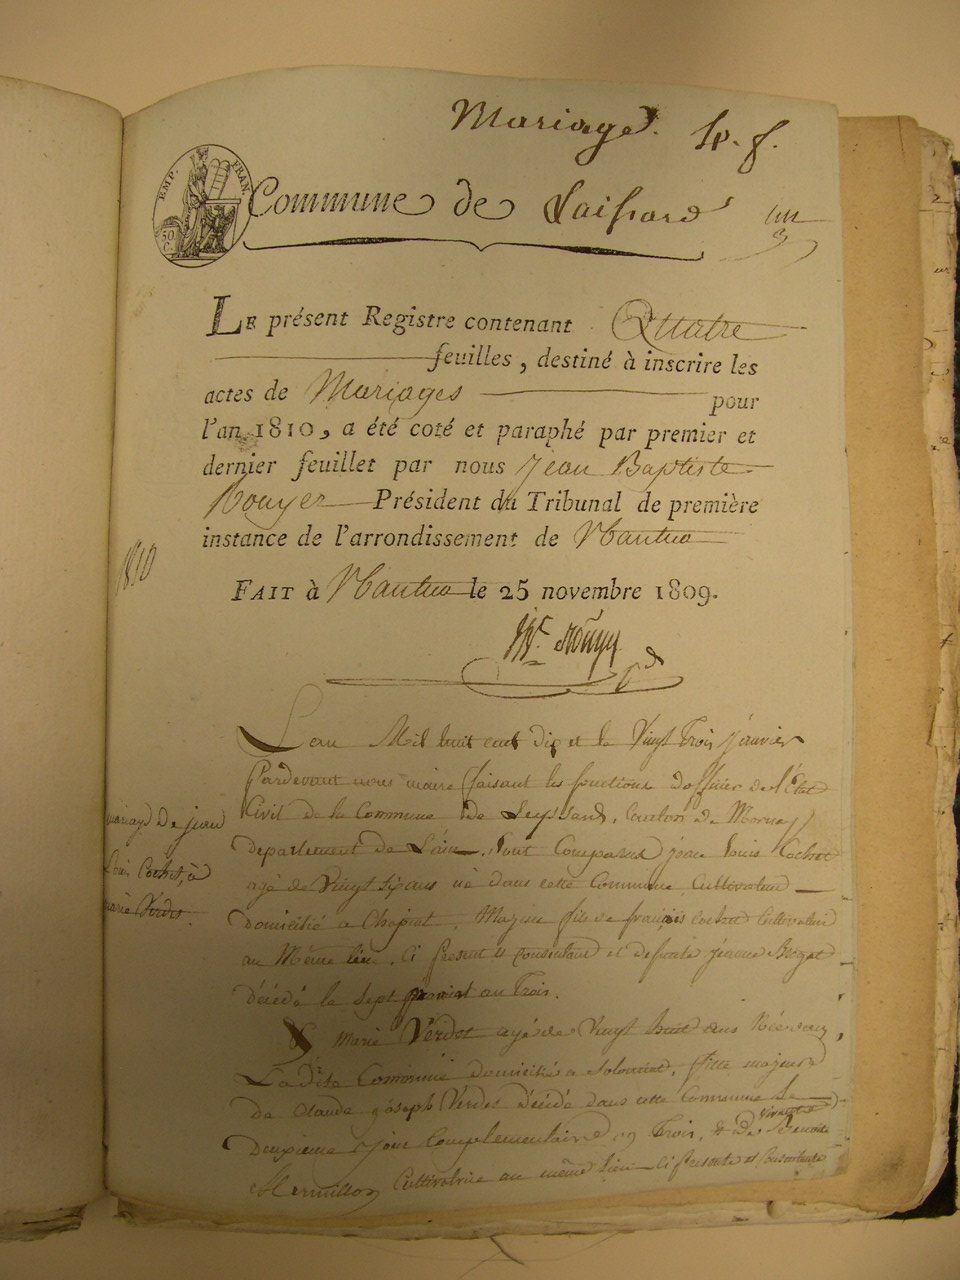 Mariage. 4. f.
EMP. FRAN.
50 C.
Commune de Laissard
un
LE présent Registre contenant Quatre
feuilles, destiné à inscrire les
actes de Mariages pour
l'an 1810, a été coté et paraphé par premier et
dernier feuillet par nous Jean Baptiste
Rouyer Président du Tribunal de première
instance de l'arrondissement de Nantua
1810
FAIT à Nantua le 25 novembre 1809.
Lan Mil huit cent dix et le Vingt Trois janvier
Pardevant nous maire faisant les fonctions dofficier de l'Etat
Civil de la Commune de Leyssard, Canton de
departement de Lain, sont Comparus jean louis Cochet
mariage De jean
Loui Cochet, à
marie Verdet.
agé de Vingt six ans né dans cette Commune Cultivateur
domicilié a Chapiat, Majeur fils de françois Cochet Cultivateur
au Même lieu, Ci present & Consentant et defunte jeanne
Décédé le Sept an Trois.
& Marie Verdet agé de Vingt huit ans Née dans
La dite Commune domicilié a Solomiat, fille majeure
De Claude joseph Verdet Décédé dans cette Commune Le
Deuxieme jour Complementaire an Trois, & De Benoite
Cultivatrice au même lieu ci presente & Consentante